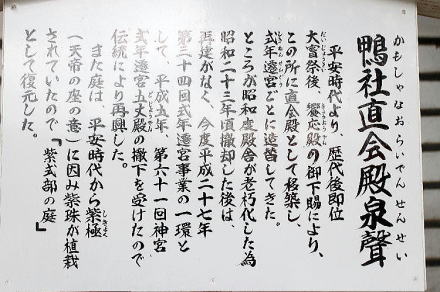 かもしゃなおらいでん せんせい
鴨社直会殿泉聲
平安時代より、歴代後即位
大嘗祭後、饗応殿の御下賜により、
この所に直会殿として移築し、
式年遷宮ごとに造替してきた。
ところが昭和度殿舎が老朽化した為
昭和二十三年頃撤却した後は、
再建がなく、今度平成二十七年
第三十四回式年遷宮事業の一環と
して、平成五年、第六十一回神宮
式年遷宮五丈殿の撤下を受けたので
伝統により再興した。
また庭は、平安時代から紫極
(天帝の座の意)に因み紫珠が植栽
されていたので「紫式部の庭」
として復元した。